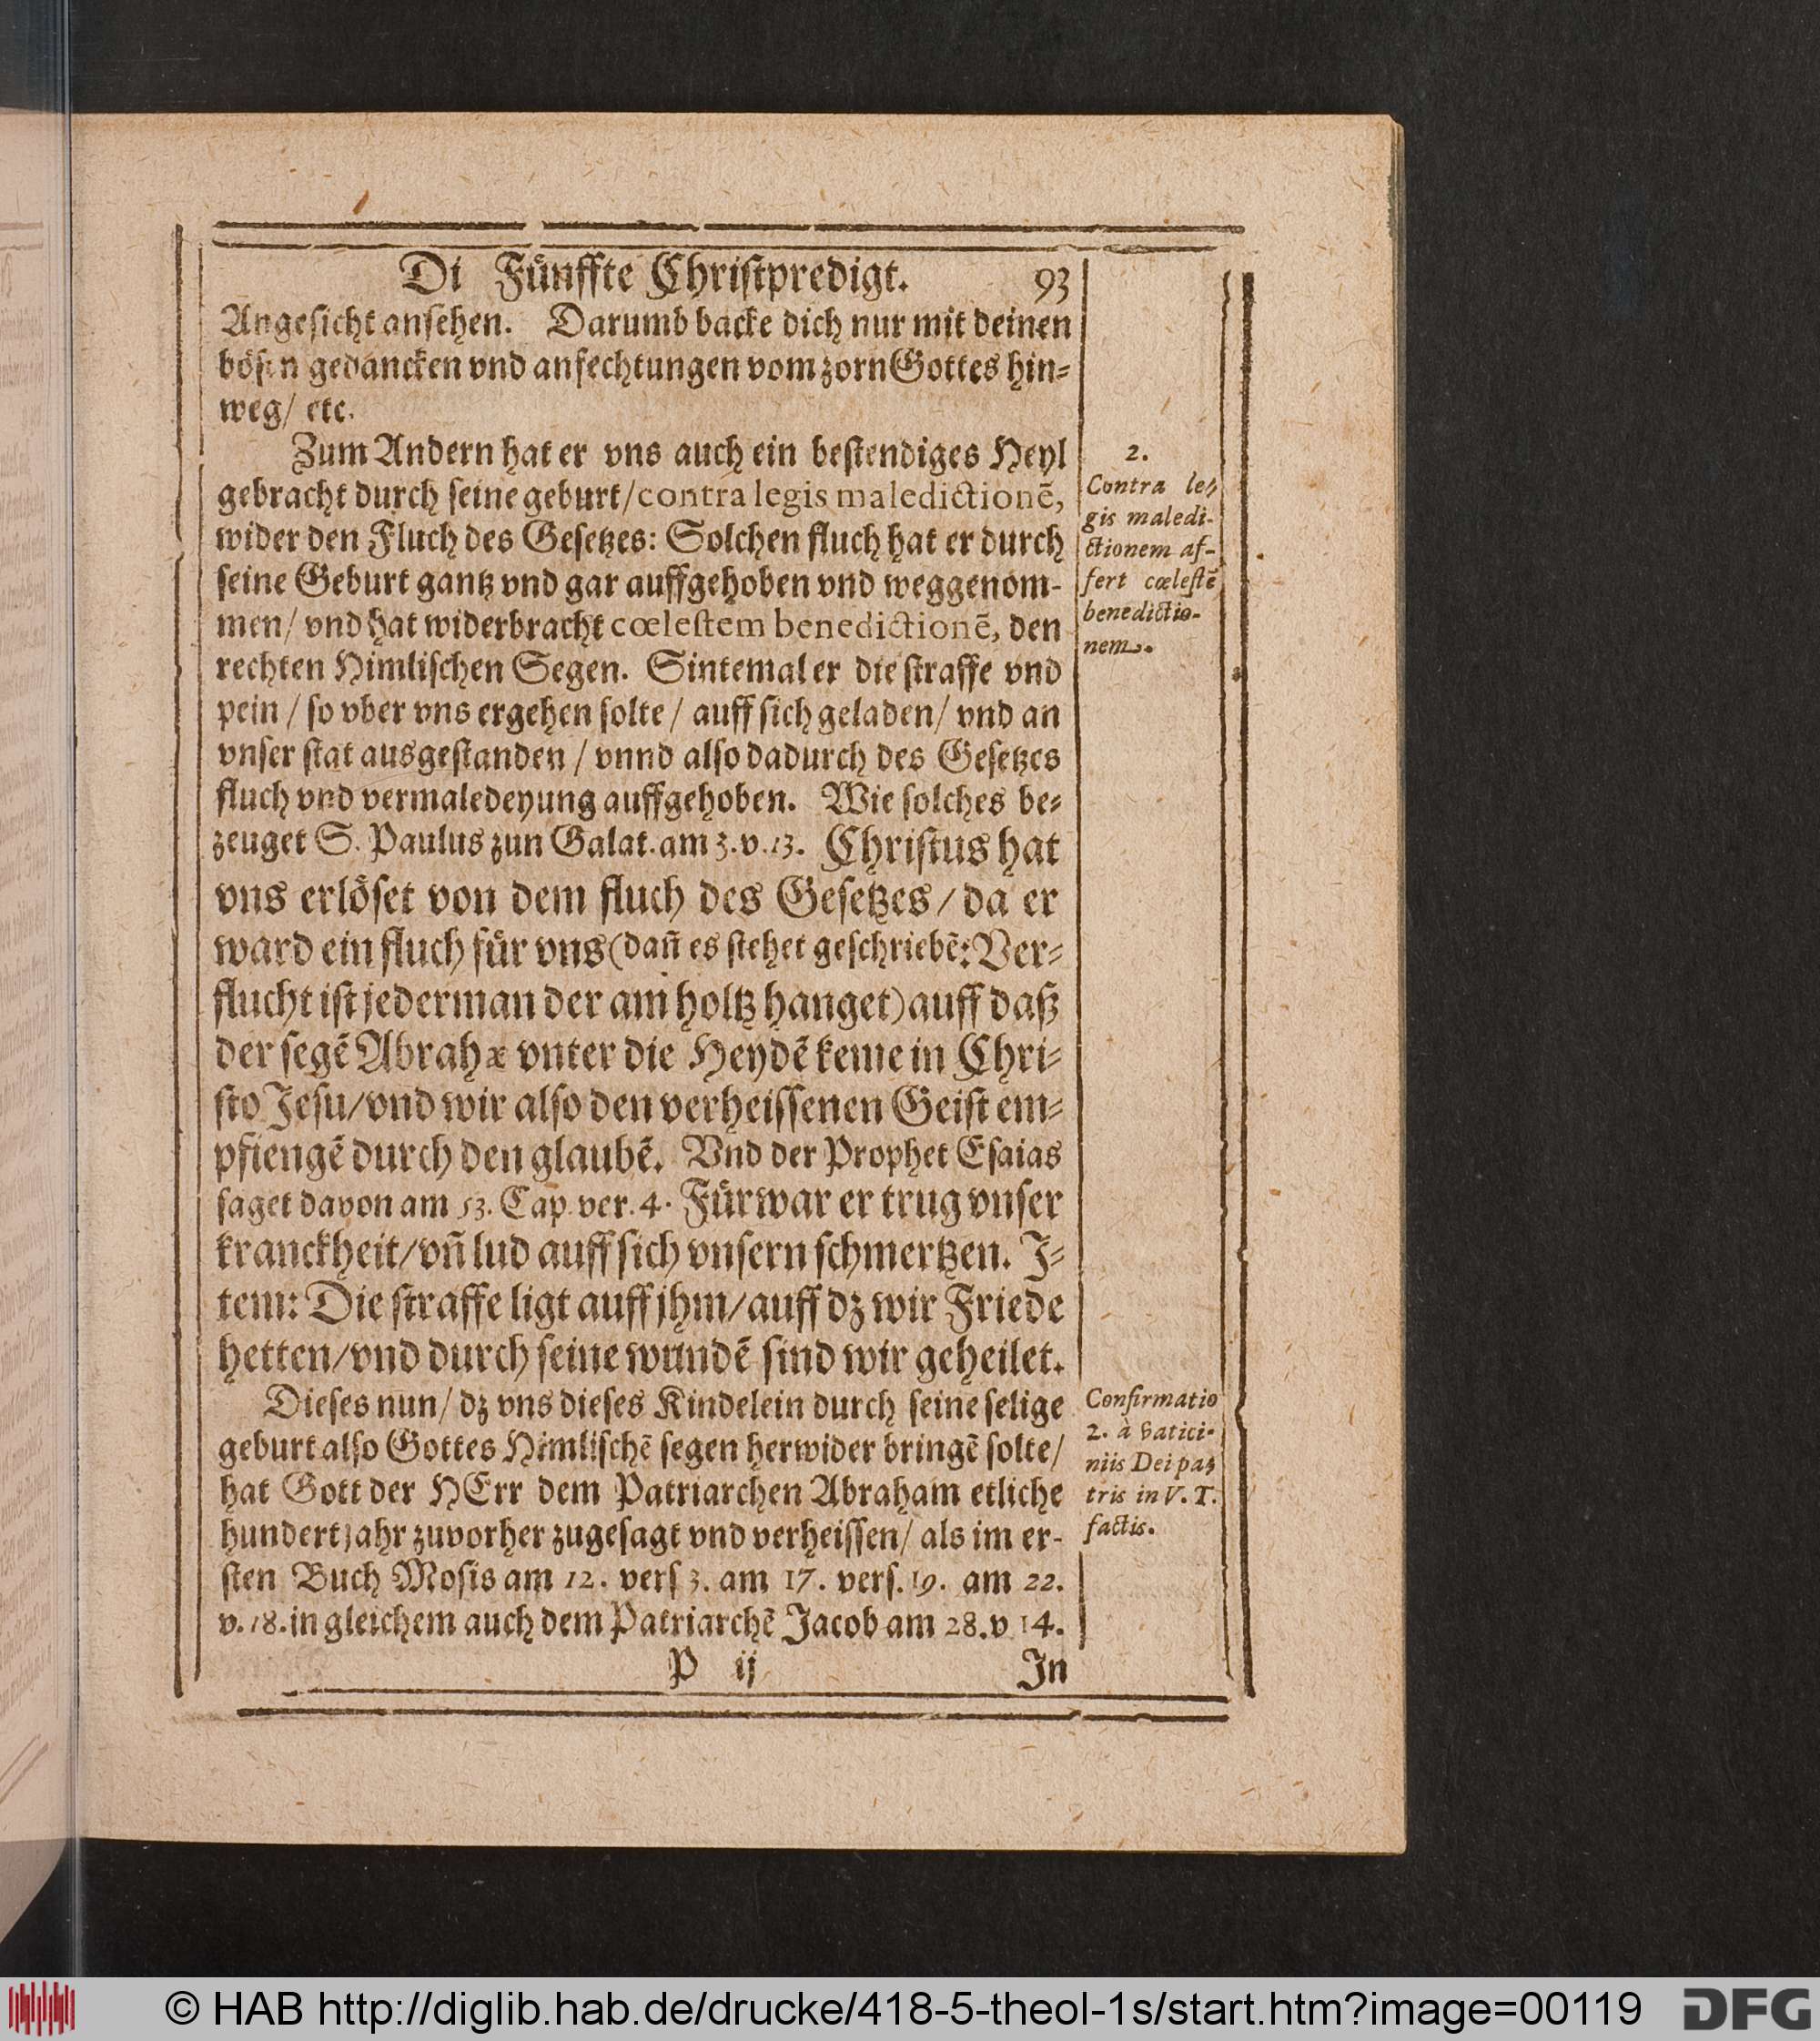 Di Fünffte Chriſtpredigt. 93
Angeſicht anſehen. Darumb packe dich nur mit deinen
böſen gedancken vnd anfechtungen vom zorn Gottes hin-
weg/ etc.
Zum Andern hat er vns auch ein beſtendiges Heyl
gebracht durch ſeine geburt/contra legis maledictionẽ,
wider den Fluch des Geſetzes: Solchen fluch hat er durch
ſeine Geburt gantz vnd gar auffgehoben vnd weggenom-
men/ vnd hat widerbracht cœleſtem benedictionẽ, den
rechten Himliſchen Segen. Sintemal er die ſtraffe vnd
pein / ſo vber vns ergehen ſolte / auff ſich geladen/ vnd an
vnſer ſtat ausgeſtanden / vnnd alſo dadurch des Geſetzes
fluch vnd vermaledeyung auffgehoben. Wie ſolches be-
zeuget S. Paulus zun Galat. am 3. v. 13. Chriſtus hat
vns erlöſet von dem fluch des Geſetzes/ da er
ward ein fluch für vns (dañ es ſtehet geſchriebẽ: Ver-
flucht iſt jederman der am holtz hanget) auff daß
der ſegẽ Abrahæ vnter die Heydẽ keme in Chri-
ſto Jeſu/vnd wir alſo den verheiſſenen Geiſt em-
pfiengẽ durch den glaubẽ. Vnd der Prophet Eſaias
ſaget davon am 53. Cap. ver. 4. Fürwar er trug vnſer
kranckheit/vñ lud auff ſich vnſern ſchmertzen. J-
tem: Die ſtraffe ligt auff jhm/auff dz wir Friede
hetten/vnd durch ſeine wundẽ ſind wir geheilet.
Dieſes nun/ dz vns dieſes Kindelein durch ſeine ſelige
geburt alſo Gottes Himliſchẽ ſegen herwider bringẽ ſolte/
hat Gott der HErr dem Patriarchen Abraham etliche
hundert jahr zuvorher zugeſagt vnd verheiſſen/ als im er-
ſten Buch Moſis am 12. verſ 3. am 17. verſ. 19. am 22.
v. 18. in gleichem auch dem Patriarchẽ Jacob am 28. v 14.
P ij Jn
2.
Contra le-
gis maledi-
ctionem af-
fert cœleſtẽ
benedictio-
nem.
Confirmatio
2. à vatici-
niis Dei pa-
tris in V. T.
factis.
© HAB http://diglib.hab.de/drucke/418-5-theol-1s/start.htm?image=00119
DFG